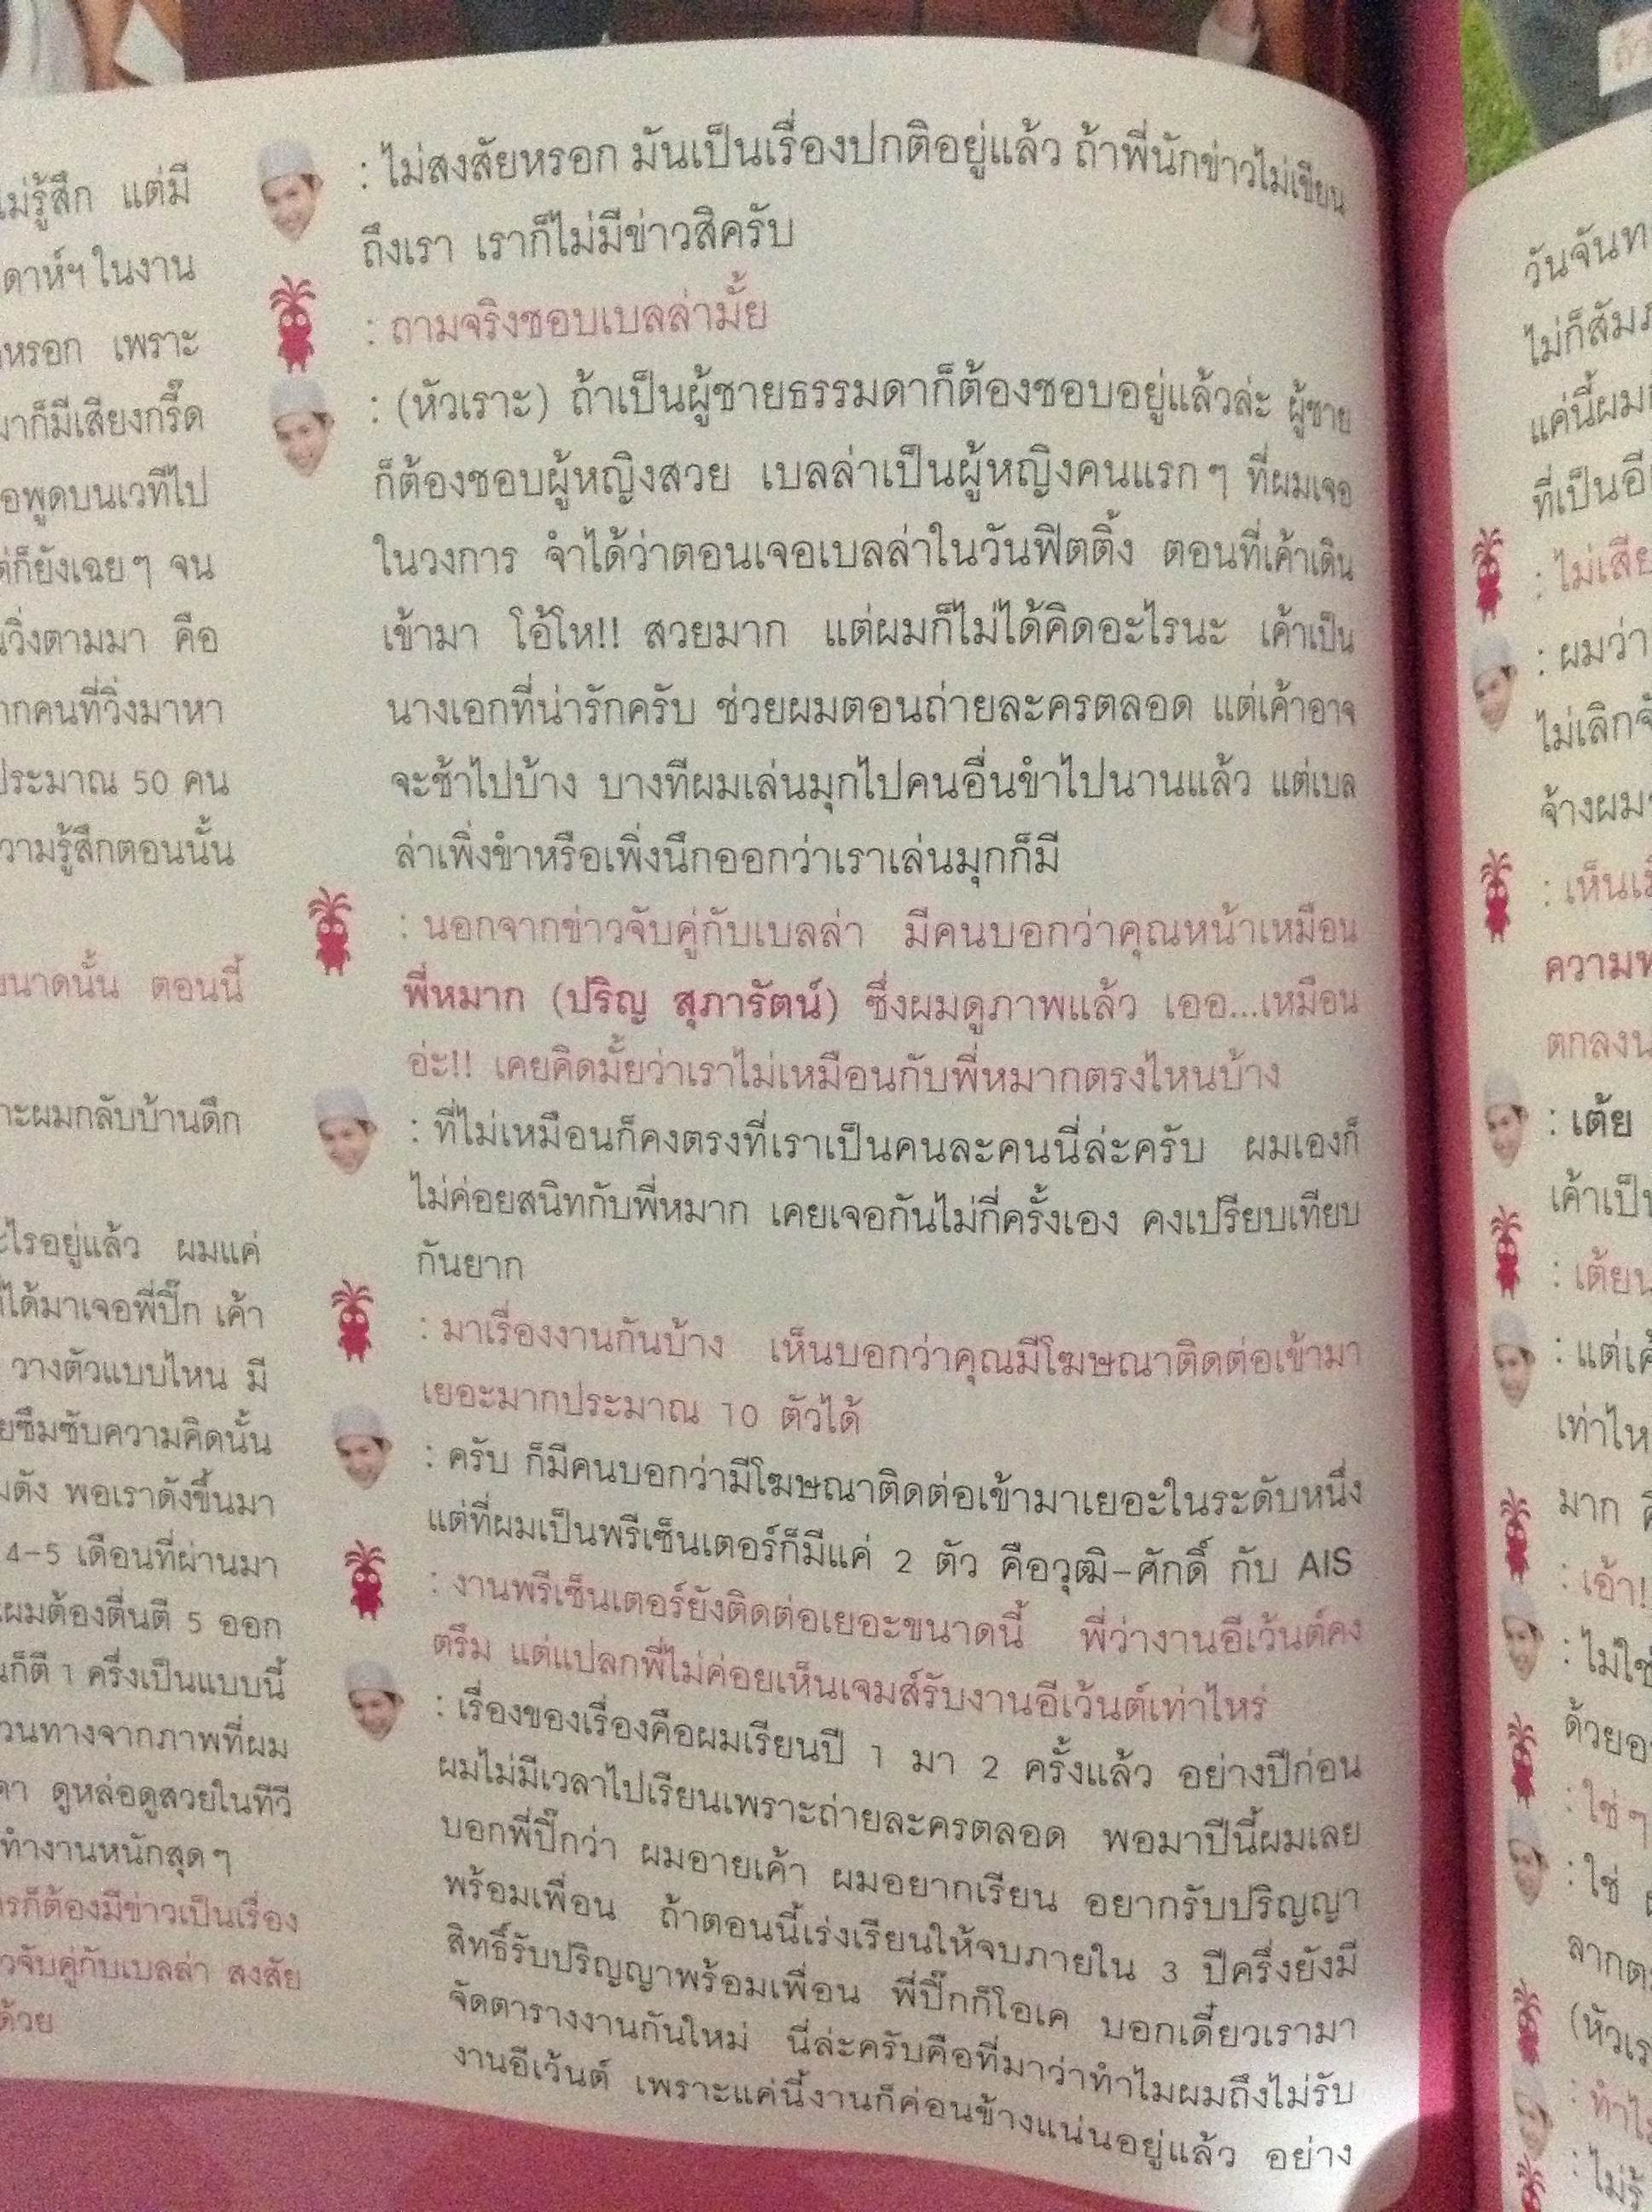 ไม่รู้สึก แต่มี
ดาห์ฯ ในงาน
หรอก เพราะ
มาก็มีเสียงกรี๊ด
อพูดบนเวทีไป
ต่ก็ยังเฉยๆ จน
วิ่งตามมา คือ
ากคนที่วิ่งมาหา
ประมาณ 50 คน
วามรู้สึกตอนนั้น
ขนาดนั้น ตอนนี้
าะผมกลับบ้านดึก
ะไรอยู่แล้ว ผมแค่
ได้มาเจอพี่ปิ๊ก เค้า
วางตัวแบบไหน มี
ยซึมซับความคิดนั้น
มดัง พอเราดังขึ้นมา
4-5 เดือนที่ผ่านมา
ผมต้องตื่นตี 5 ออก
นก็ตี 1 ครึ่งเป็นแบบนี้
วนทางจากภาพที่ผม
ดูหล่อดูสวยในทีวี
ทำงานหนักสุดๆ
รก็ต้องมีข่าวเป็นเรื่อง
วจับคู่กับเบลล่า สงสัย
ด้วย
: ไม่สงสัยหรอก มันเป็นเรื่องปกติอยู่แล้ว ถ้าพี่นักข่าวไม่เขียน
ถึงเรา เราก็ไม่มีข่าวสิครับ
: ถามจริงชอบเบลล่ามั้ย
: (หัวเราะ) ถ้าเป็นผู้ชายธรรมดาก็ต้องชอบอยู่แล้วล่ะ ผู้ชาย
ก็ต้องชอบผู้หญิงสวย เบลล่าเป็นผู้หญิงคนแรกๆ ที่ผมเจอ
ในวงการ จำได้ว่าตอนเจอเบลล่าในวันฟิตติ้ง ตอนที่เค้าเดิน
เข้ามา โอ้โห!! สวยมาก แต่ผมก็ไม่ได้คิดอะไรนะ เค้าเป็น
นางเอกที่น่ารักครับ ช่วยผมตอนถ่ายละครตลอด แต่เค้าอาจ
จะช้าไปบ้าง บางทีผมเล่นมุกไปคนอื่นขำไปนานแล้ว แต่เบล
ล่าเพิ่งขำหรือเพิ่งนึกออกว่าเราเล่นมุกก็มี
: นอกจากข่าวจับคู่กับเบลล่า มีคนบอกว่าคุณหน้าเหมือน
พี่หมาก (ปริญ สุภารัตน์) ซึ่งผมดูภาพแล้ว เออ...เหมือน
อ่ะ!! เคยคิดมั้ยว่าเราไม่เหมือนกับพี่หมากตรงไหนบ้าง
: ที่ไม่เหมือนก็คงตรงที่เราเป็นคนละคนนี่ล่ะครับ ผมเองก็
ไม่ค่อยสนิทกับพี่หมาก เคยเจอกันไม่กี่ครั้งเอง คงเปรียบเทียบ
กันยาก
: มาเรื่องงานกันบ้าง เห็นบอกว่าคุณมีโฆษณาติดต่อเข้ามา
เยอะมากประมาณ 10 ตัวได้
: ครับ ก็มีคนบอกว่ามีโฆษณาติดต่อเข้ามาเยอะในระดับหนึ่ง
แต่ที่ผมเป็นพรีเซ็นเตอร์ก็มีแค่ 2 ตัว คือวุฒิ-ศักดิ์ กับ AIS
: งานพรีเซ็นเตอร์ยังติดต่อเยอะขนาดนี้ พี่ว่างานอีเว้นต์คง
ตรึม แต่แปลกพี่ไม่ค่อยเห็นเจมส์รับงานอีเว้นต์เท่าไหร่
: เรื่องของเรื่องคือผมเรียนปี 1 มา 2 ครั้งแล้ว อย่างปีก่อน
ผมไม่มีเวลาไปเรียนเพราะถ่ายละครตลอด พอมาปีนี้ผมเลย
บอกพี่ปิ๊กว่า ผมอายเค้า ผมอยากเรียน อยากรับปริญญา
พร้อมเพื่อน ถ้าตอนนี้เร่งเรียนให้จบภายใน 3 ปีครึ่งยังมี
สิทธิ์รับปริญญาพร้อมเพื่อน พี่ปิ๊กก็โอเค บอกเดี๋ยวเรามา
จัดตารางงานกันใหม่ นี่ล่ะครับคือที่มาว่าทำไมผมถึงไม่รับ
งานอีเว้นต์ เพราะแค่นี้งานก็ค่อนข้างแน่นอยู่แล้ว อย่าง
วันจันท
ไม่ก็สัม
แค่นี้ผม
ที่เป็นอี
: ไม่เสีย
: ผมว่า
ไม่เลิก
จ้างผม
: เห็น
ความ
ตกลง
: เต้ย
เค้าเป็น
: เต้ย
: แต่เค้
เท่าไห
มาก
: เอ้า!
: ไม่ใช่
ด้วย
: ใช่ๆ
: ใช่
ลาก
(หัวเร
: ทำไ
: ไม่รู้